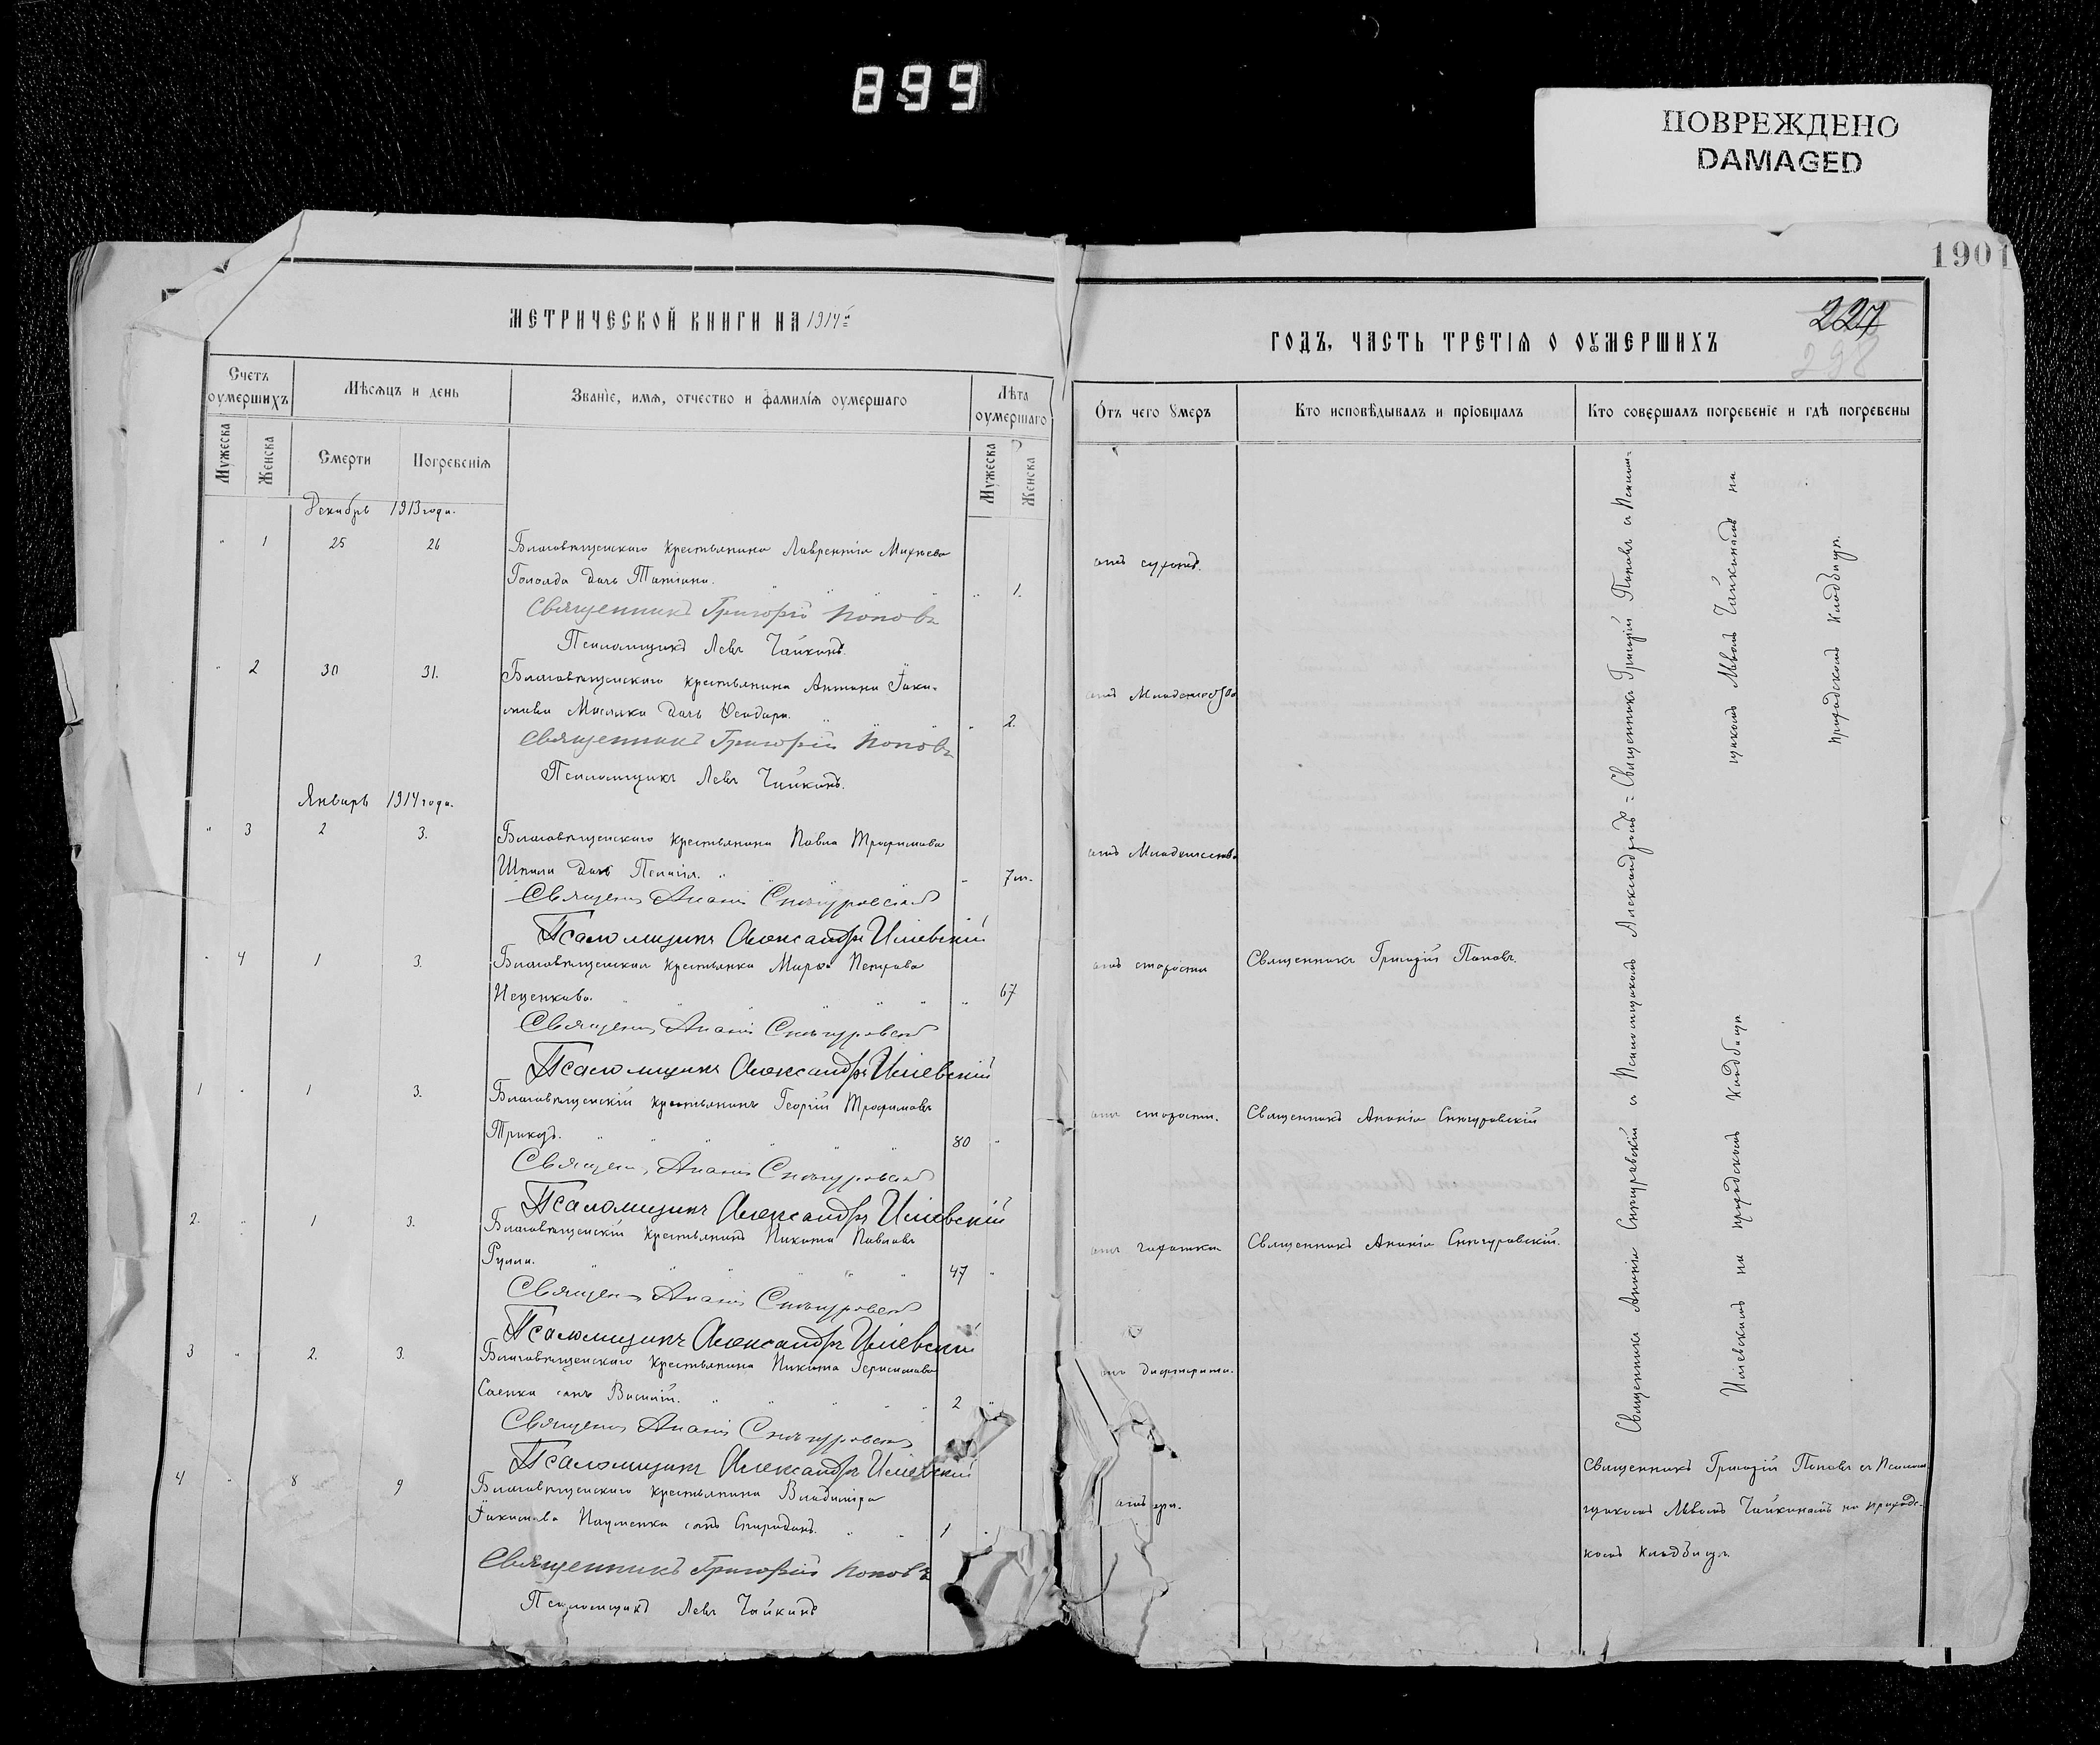 899
ПОВРЕЖДЕНО
DAMAGED
1901
МЕТРИЧЕСКОЙ КНИГИ НА 1914й
Счетъ оумершихъ
Мѣсяцъ и день
Званіе, имя, отчество и фамилія оумершаго
Лѣта оумершаго
Мужеска
Женска
Смерти
Погребенія
Мужеска
Женска
Декабрь 1913 года.
" 1 25 26 Благовѣщенскаго крестьянина Лаврентія Михѣева
дочь Татіана. " " " " 1.
Священникъ Григорій Поповъ
Псаломщикъ Левъ Чайкинъ.
" 2 30 31. Благовѣщенскаго крестьянина Антона Іаки-
мова Масляка дочь Ѳеодора. " " " 2.
Священникъ Григорій Поповъ
Псаломщикъ Левъ Чайкинъ.
Январь 1914 года.
" 3 2 3. Благовѣщенскаго крестьянина Павла Трофимова
Шпили дочь Пелагія. " " 7 м.
Священ. Ананія Снѣгуровскій
Псаломщикъ Александръ Ильевскій
" 4 1 3. Благовѣщенская крестьянка Марѳа Петрова
" " " " " 67
Священ. Ананія Снѣгуровскій
Псаломщикъ Александръ Ильевскій
1 " 1 3. Благовѣщенскій крестьянинъ Георгій Трофимовъ
" " " " " 80 "
Священ. Ананія Снѣгуровскій
Псаломщикъ Александръ Ильевскій
2. " 1 3. Благовѣщенскій крестьянинъ Никита Павловъ
" " " " " 47 "
Священ. Ананія Снѣгуровскій
Псаломщикъ Александръ Ильевскій
3 " 2. 3. Благовѣщенскаго крестьянина Никита Герасимова
Саенка сынъ Василій. " " " " 2 "
Священ. Ананія Снѣгуровскій
Псаломщикъ Александръ Ильевскій
4 " 8 9 Благовѣщенскаго крестьянина Владиміра
Іакимова Науменка сынъ Спиридонъ. " " 1 "
Священникъ Григорій Поповъ
Псаломщикъ Левъ Чайкинъ
227
298
ГОДЪ, ЧАСТЬ ТРЕТІЯ О ОУМЕРШИХЪ
Отъ чего умеръ
Кто исповѣдывалъ и пріобщалъ
Кто совершалъ погребеніе и гдѣ погребены
отъ сухотъ.
отъ младенческой
отъ младенческой
отъ старости Священникъ Григорій Поповъ.
отъ старости. Священникъ Ананія Снѣгуровскій
отъ чахотки Священникъ Ананія Снѣгуровскій.
отъ дифтерита.
отъ
Священникъ Григорій Поповъ съ Псалом-
щикомъ Львомъ Чайкинымъ на
приходскомъ кладбищѣ.
Священникъ Ананія Снѣгуровскій съ Псаломщикомъ Александромъ
Ильевскимъ на приходскомъ кладбищѣ
Священникъ Григорій Поповъ съ Псалом-
щикомъ Львомъ Чайкинымъ на приходс-
комъ кладбищѣ.